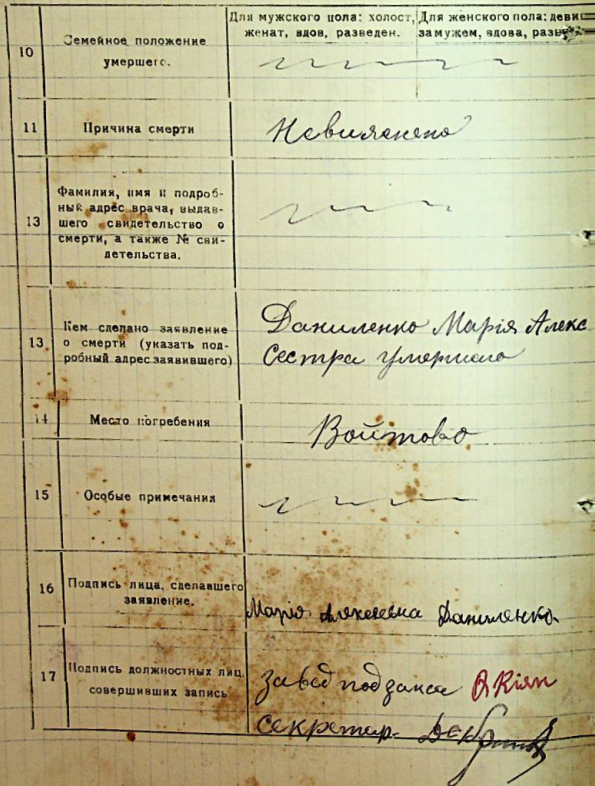 Для мужского пола: холост, женат, вдов, разведен.
Для женского пола: деви
замужем, вдова, разве
10 Семейное положение умершего.
11 Причина смерти
Невиясненно
13 Фамилия, имя и подроб-
ный адрес врача, выдав-
шего свидетельство о
смерти, а также № сви-
детельства.
13 Кем сделано заявление
о смерти (указать под-
робный адрес заявившего)
Даниленко Марія Алекс
Сестра умершего
14 Место погребения
Войтово
15 Особые примечания
16 Подпись лица, сделавшего
заявление.
Марія Алексеевна Даниленко.
17 Подпись должностных лиц,
совершивших запись
Завед подзагса
Секретар.